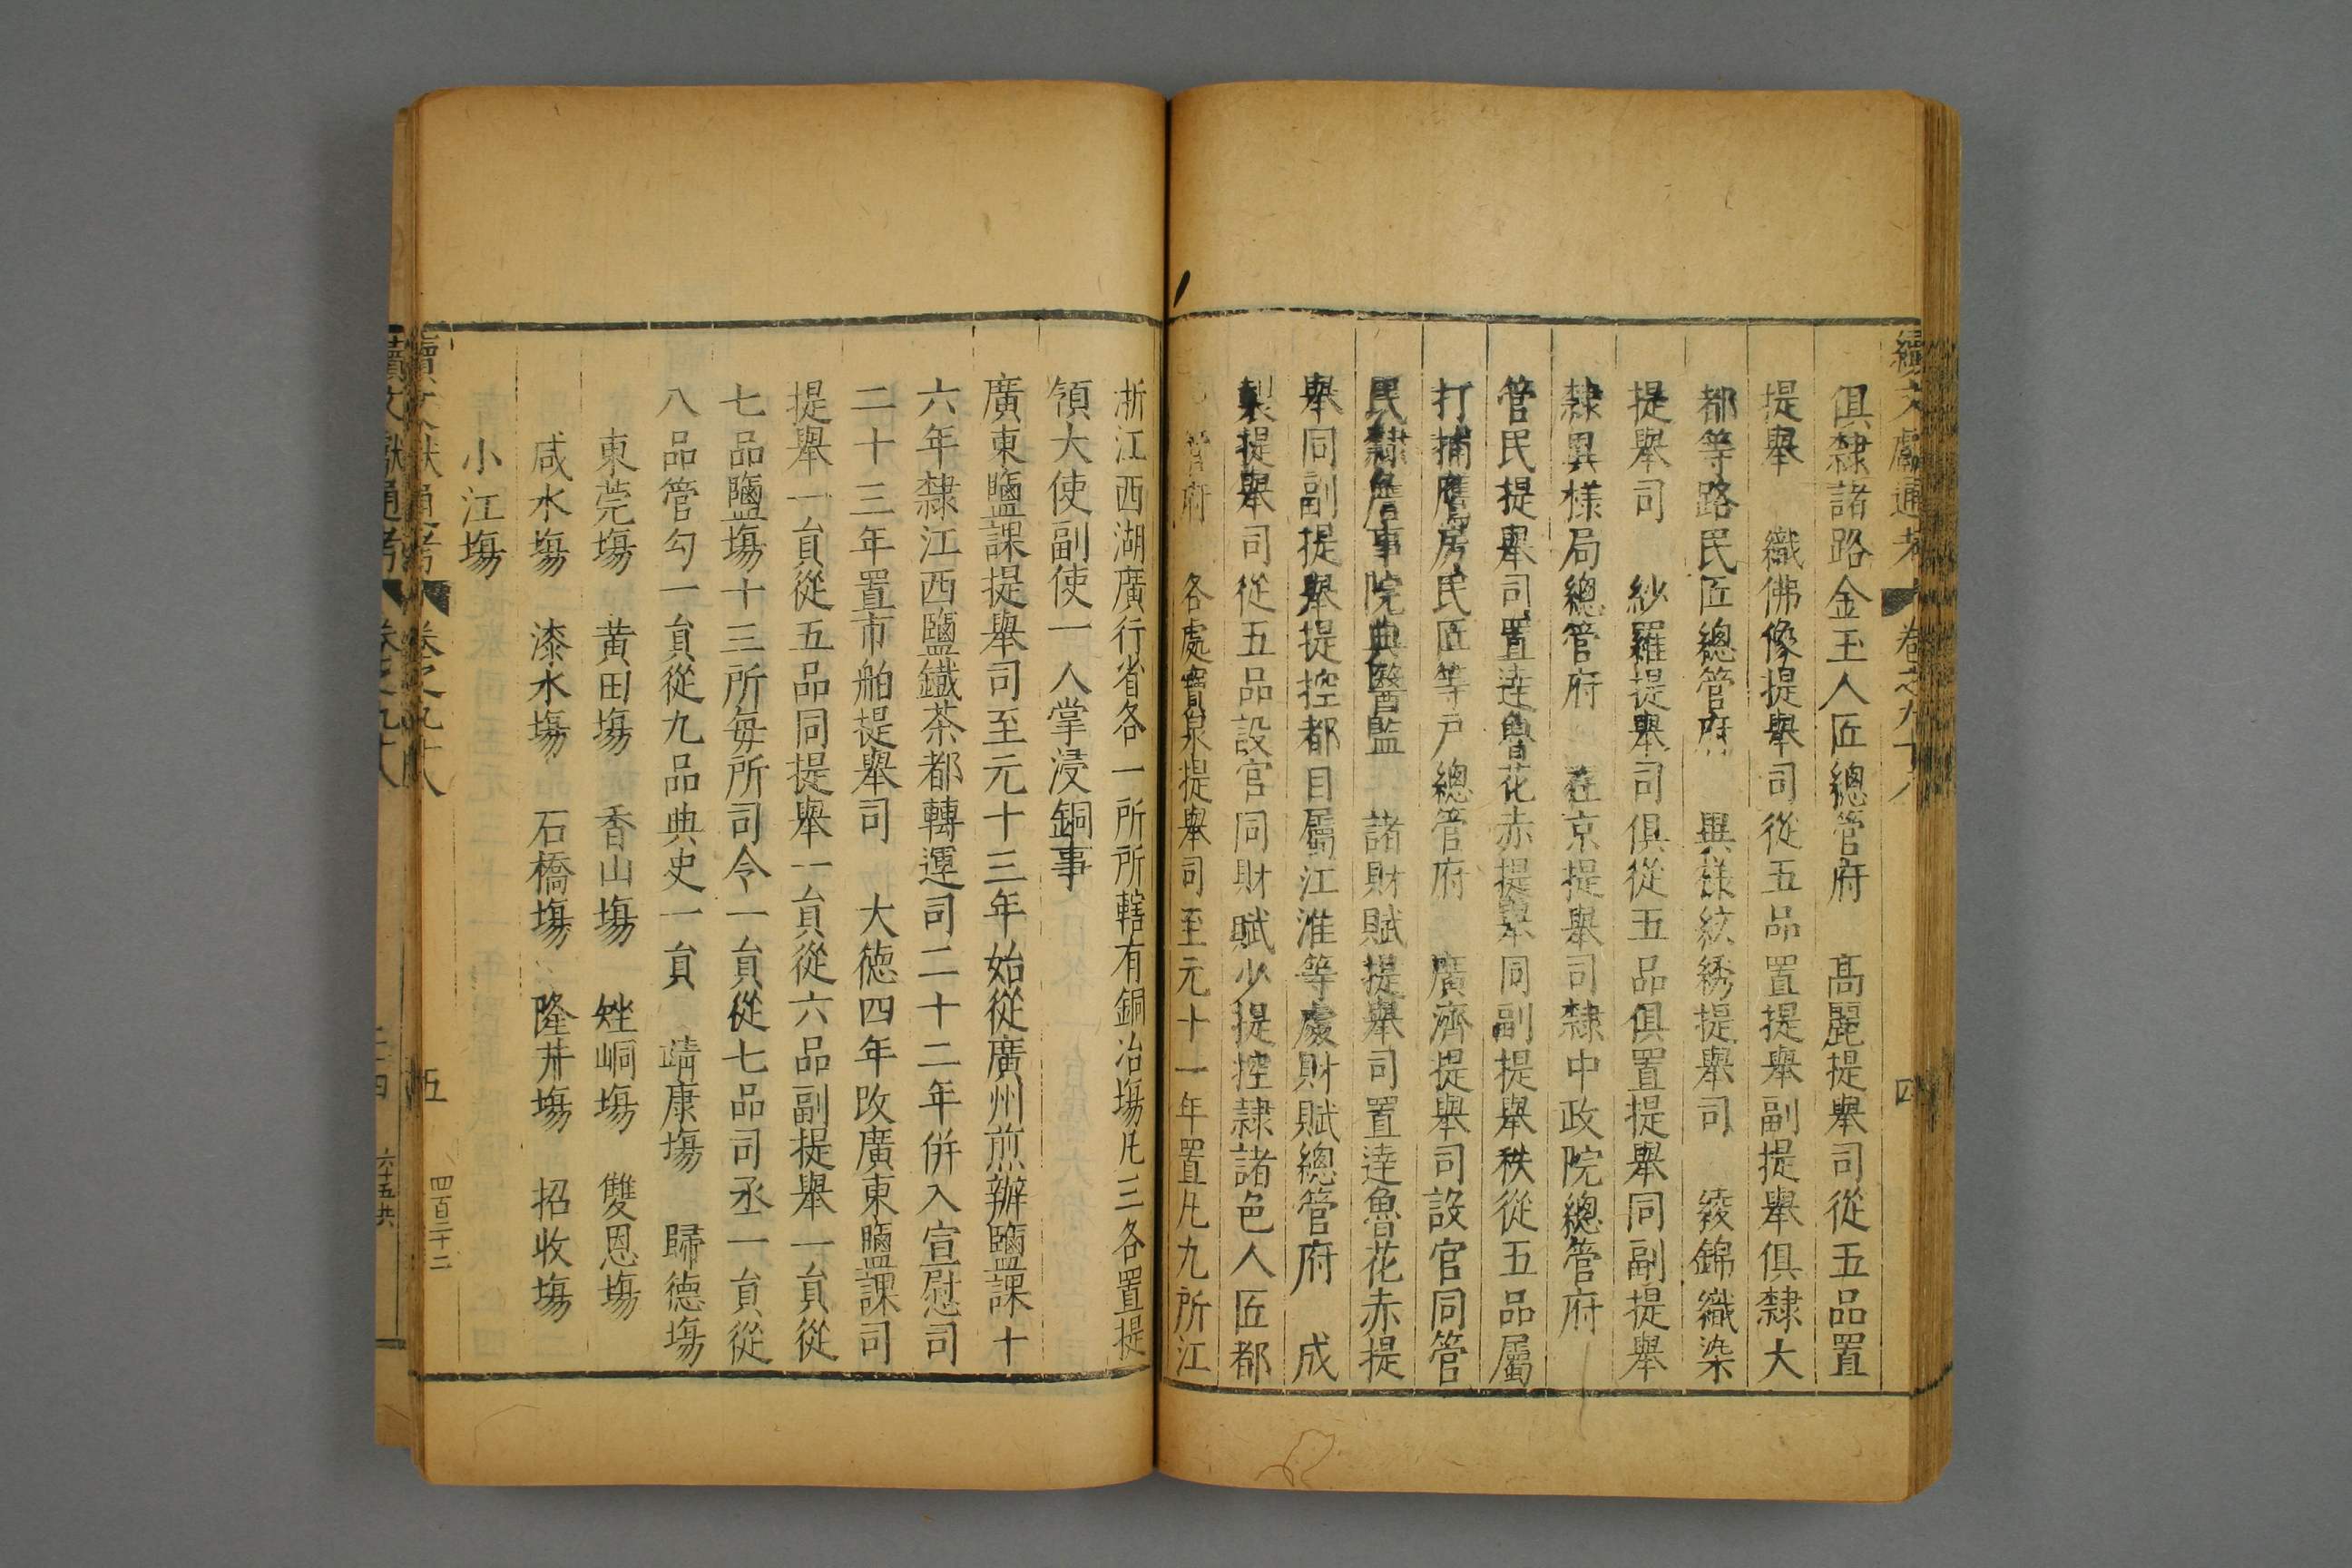 續文獻通考 卷之九十八 四
俱隸諸路金玉人匠總管府 高麗提舉司從五品置
提舉 織佛像提舉司從五品置提舉副提舉俱隸大
都等路民匠總管府 異樣紋綉提舉司 綾錦織染
提舉司 紗羅提舉司俱從五品俱置提舉同副提舉
隸異樣局總管府 在京提舉司隸中政院總管府
管民提舉司置達魯花赤提舉同副提舉秩從五品屬
打捕鷹房民匠等戶總管府 廣濟提舉司設官同管
民隸詹事院典醫監 諸財賦提舉司置達魯花赤提
舉同副提舉提控都目屬江淮等處財賦總管府 成
製提舉司從五品設官同財賦少提控隸諸色人匠都
管府 各處寶泉提舉司至元十一年置凡九所江
浙江西湖廣行省各一所所轄有銅冶塲凡三各置提
領大使副使一人掌浸銅事
廣東鹽課提舉司至元十三年始從廣州煎辦鹽課十
六年隸江西鹽鐵茶都轉運司二十二年併入宣慰司
二十三年置市舶提舉司 大德四年改廣東鹽課司
提舉一員從五品同提舉一員從六品副提舉一員從
七品鹽塲十三所每所司令一員從七品司丞一員從
八品管勾一員從九品典史一員 靖康塲 歸德塲
東莞塲 黃田塲 香山塲 矬峒塲 雙恩塲
咸水塲 漆水塲 石橋塲 隆井塲 招收塲
小江塲
續文獻通考 卷之九十八 五 四百二十二
續文獻通考 卷之九十八 六十五共